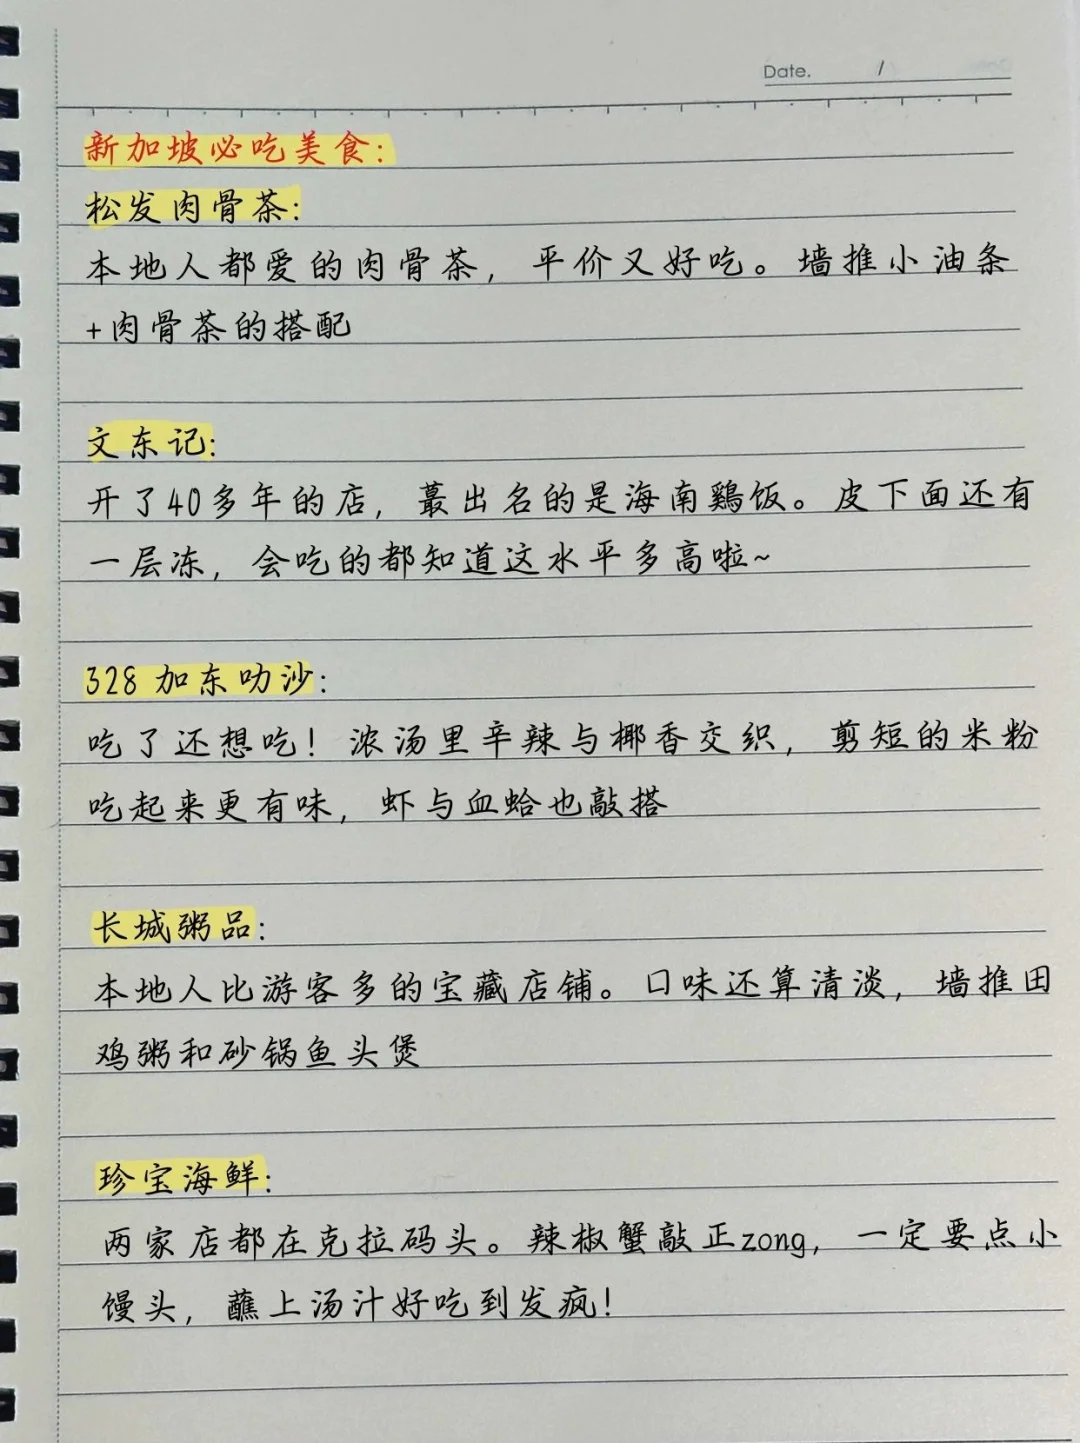 Date. /
新加坡必吃美食:
松发肉骨茶:
本地人都爱的肉骨茶，平价又好吃。墙推小油条
+肉骨茶的搭配
文东记:
开了40多年的店，蕞出名的是海南鷄饭。皮下面还有
一层冻，会吃的都知道这水平多高啦~
328加东叻沙:
吃了还想吃！浓汤里辛辣与椰香交织，剪短的米粉
吃起来更有味，虾与血蛤也敲搭
长城粥品:
本地人比游客多的宝藏店铺。口味还算清淡，墙推田
鸡粥和砂锅鱼头煲
珍宝海鲜:
两家店都在克拉码头。辣椒蟹敲正zong，一定要点小
馒头，蘸上汤汁好吃到发疯！